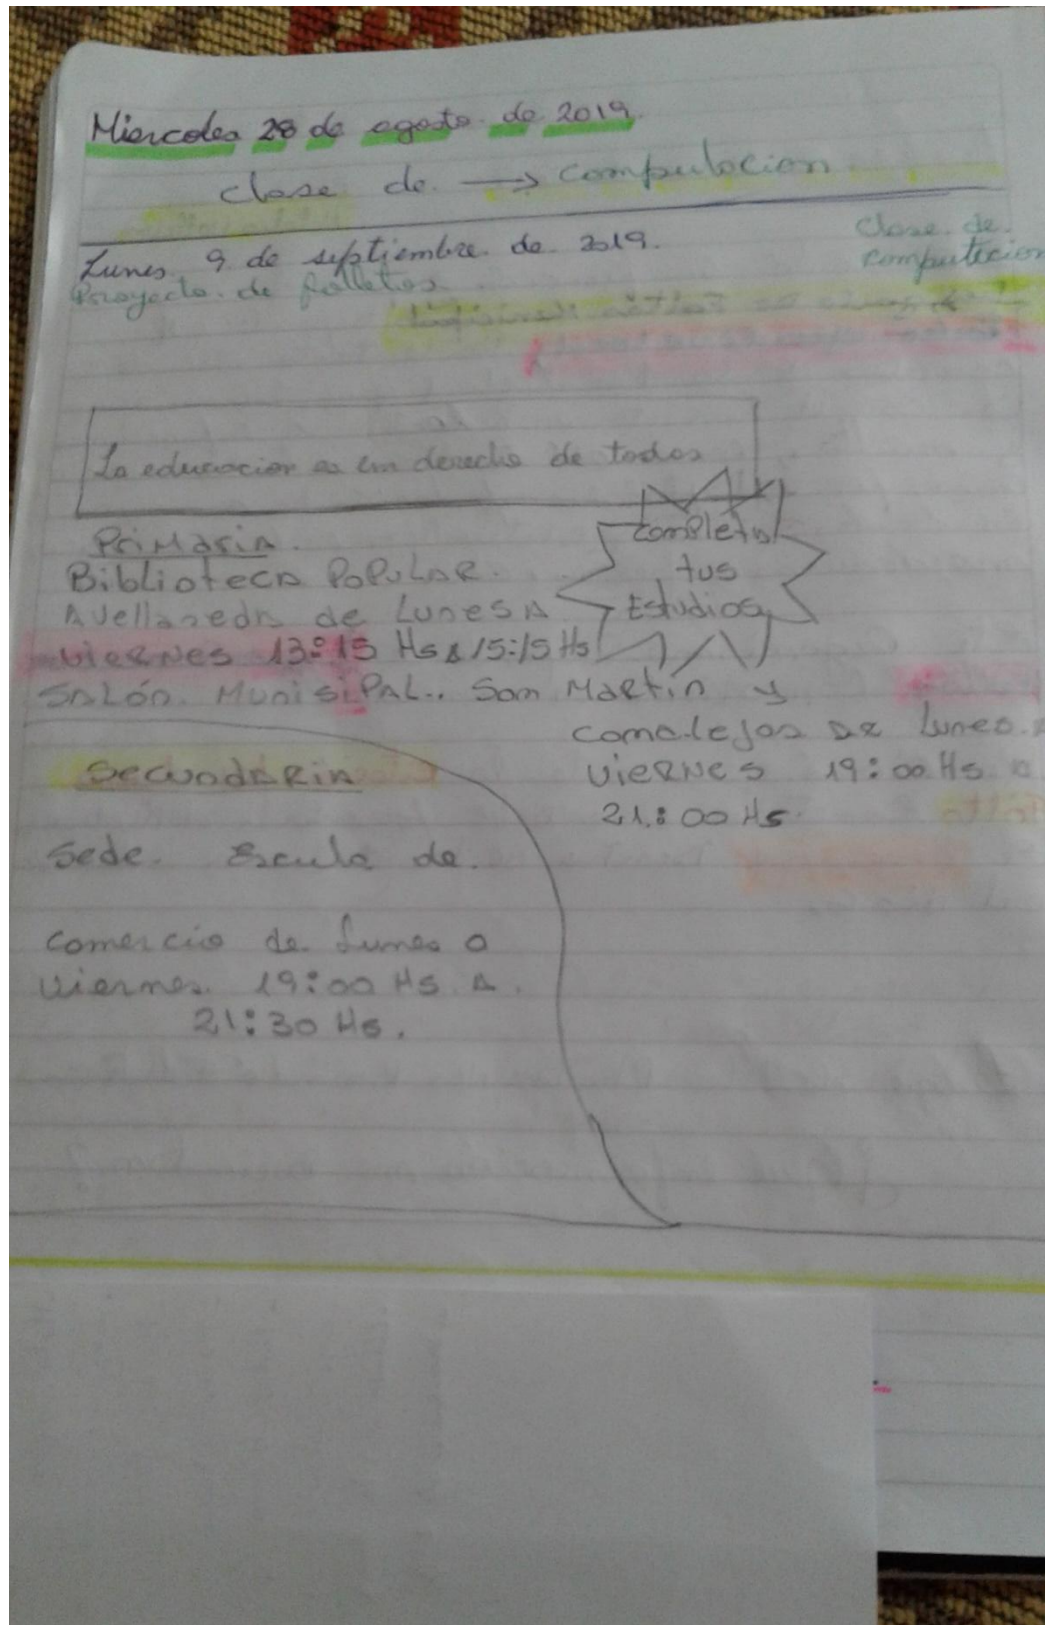 Miercoles 28 de agosto de 2019.
clase de → computacion
Lunes 9 de septiembre de 2019.
clase de
computacion
Proyecto de folletos
La educacion es un derecho de todos
Completa
tus
Estudios
Primaria.
Biblioteca Popular.
Avellaneda de Lunes A
viernes 13:15 Hs A 15:15 Hs
Salón Munisipal.. San Martín y
de Lunes A
viernes 19:00 Hs a
21:00 Hs.
Secundaria
Sede Escula de
comercio de Lunes a
viernes 19:00 Hs A
21:30 Hs.